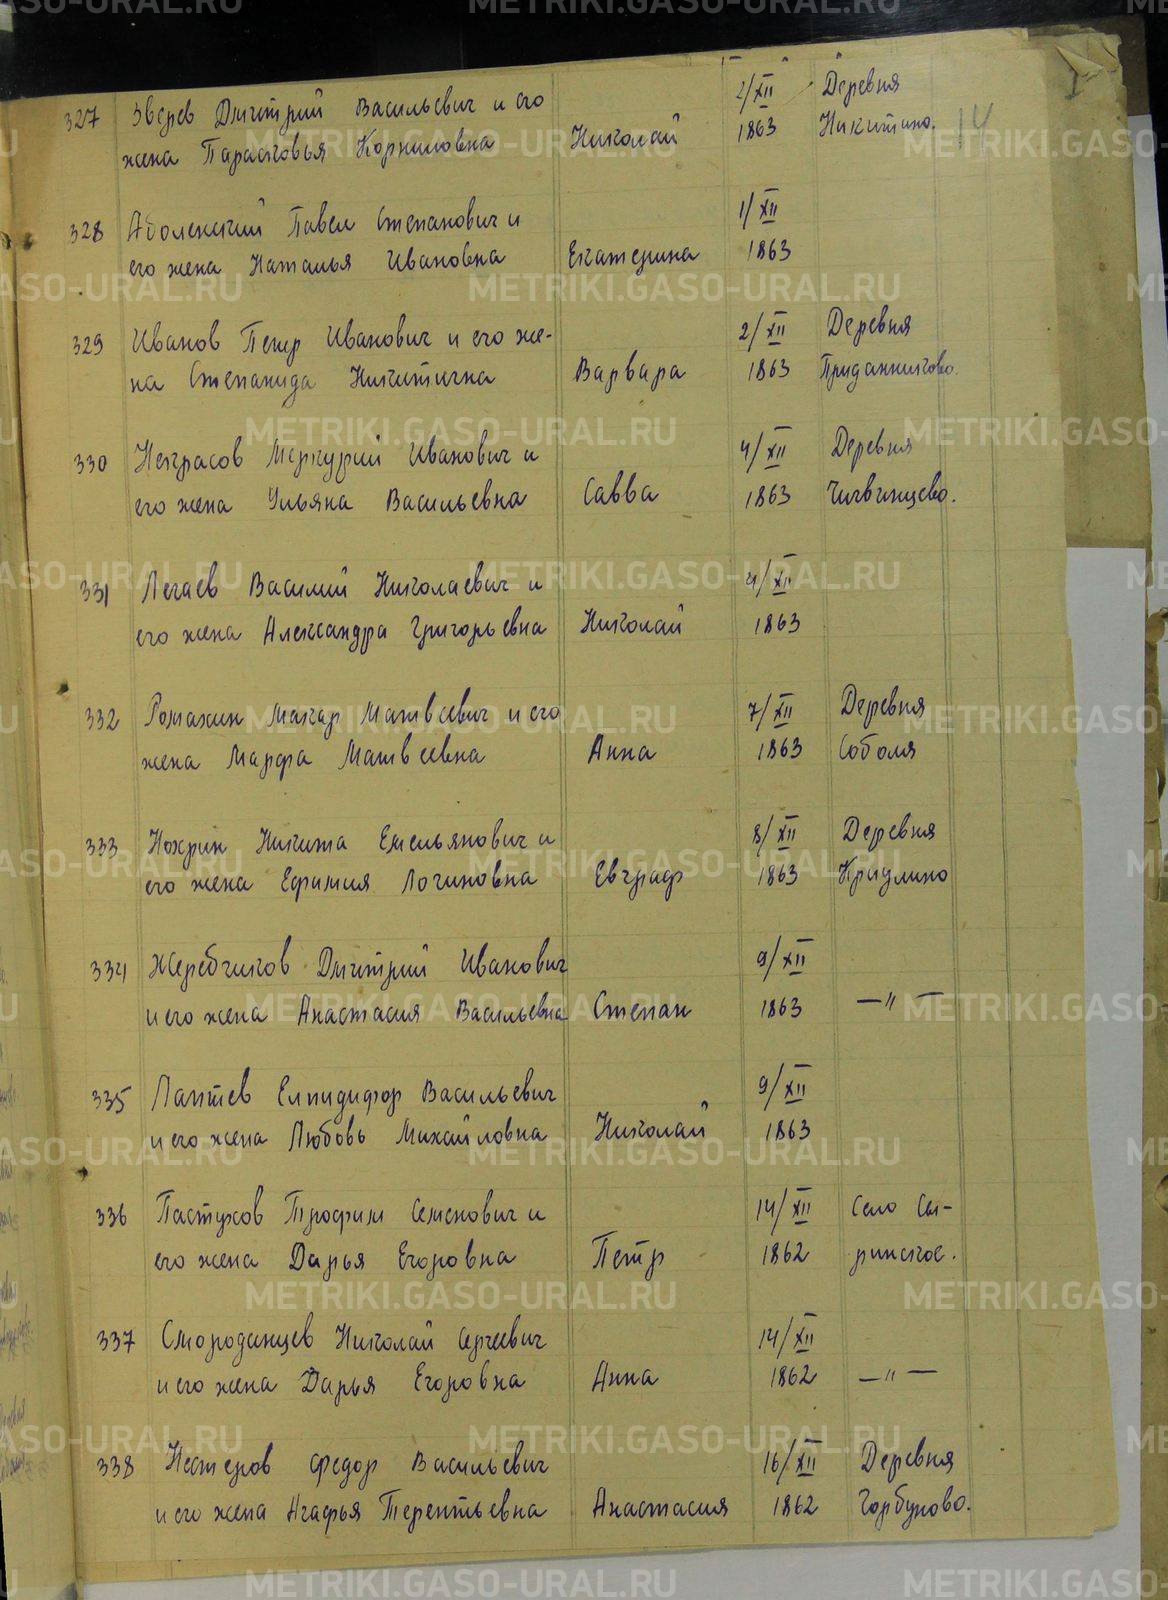 14
327 Зверев Дмитрий Васильевич и его 2/XII Деревня
жена Парасковья Корниловна Николай 1863 Никитино.
328 Аболенский Павел Степанович и 1/XII
его жена Наталья Ивановна Екатерина 1863
329 Иванов Петр Иванович и его же- 2/XII Деревня
на Степанида Никитична Варвара 1863 Приданниково.
330 Некрасов Меркурий Иванович и 4/XII Деревня
его жена Ульяна Васильевна Савва 1863 Чивинцево.
331 Легаев Василий Николаевич и 4/XII
его жена Александра Григорьевна Николай 1863
332 Ромахин Макар Матвеевич и его 7/XII Деревня
жена Марфа Матвеевна Анна 1863 Соболя
333 Нохрин Никита Емельянович и 8/XII Деревня
его жена Ефимия Логиновна Евграф 1863 Криулино
334 Жеребчиков Дмитрий Иванович 9/XII
и его жена Анастасия Васильевна Степан 1863 —"—
335 Лаптев Елпидифор Васильевич 9/XII
и его жена Любовь Михайловна Николай 1863
336 Пастухов Трофим Семенович и 14/XII Село Сы-
его жена Дарья Егоровна Петр 1862 ринское.
337 Смороданцев Николай Сергеевич 14/XII
и его жена Дарья Егоровна Анна 1862 —"—
338 Нестеров Федор Васильевич 16/XII Деревня
и его жена Агафья Терентьевна Анастасия 1862 Горбуново.
METRIKI.GASO-URAL.RU